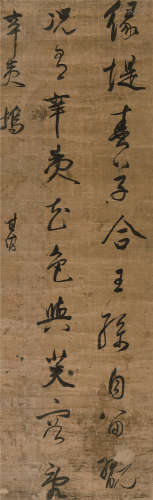 緑堤春草合王孫自留翫
況有辛夷花色與芙容亂
辛夷塢 其昌